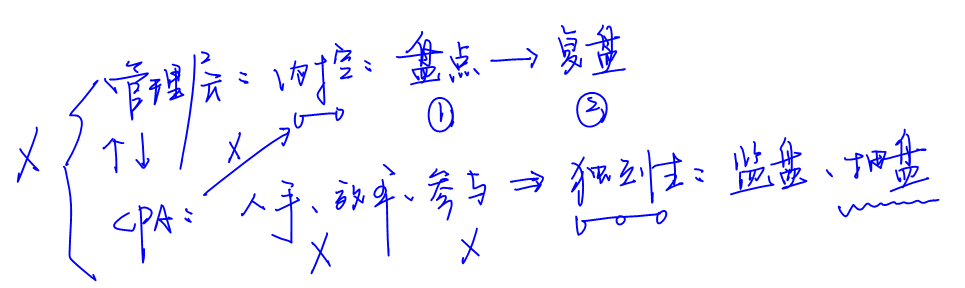 管理层：内控：盘点→复盘
① ②
X ↑↓ X
CPA：人手、效率、参与⇒独立性：监盘、抽盘
X X